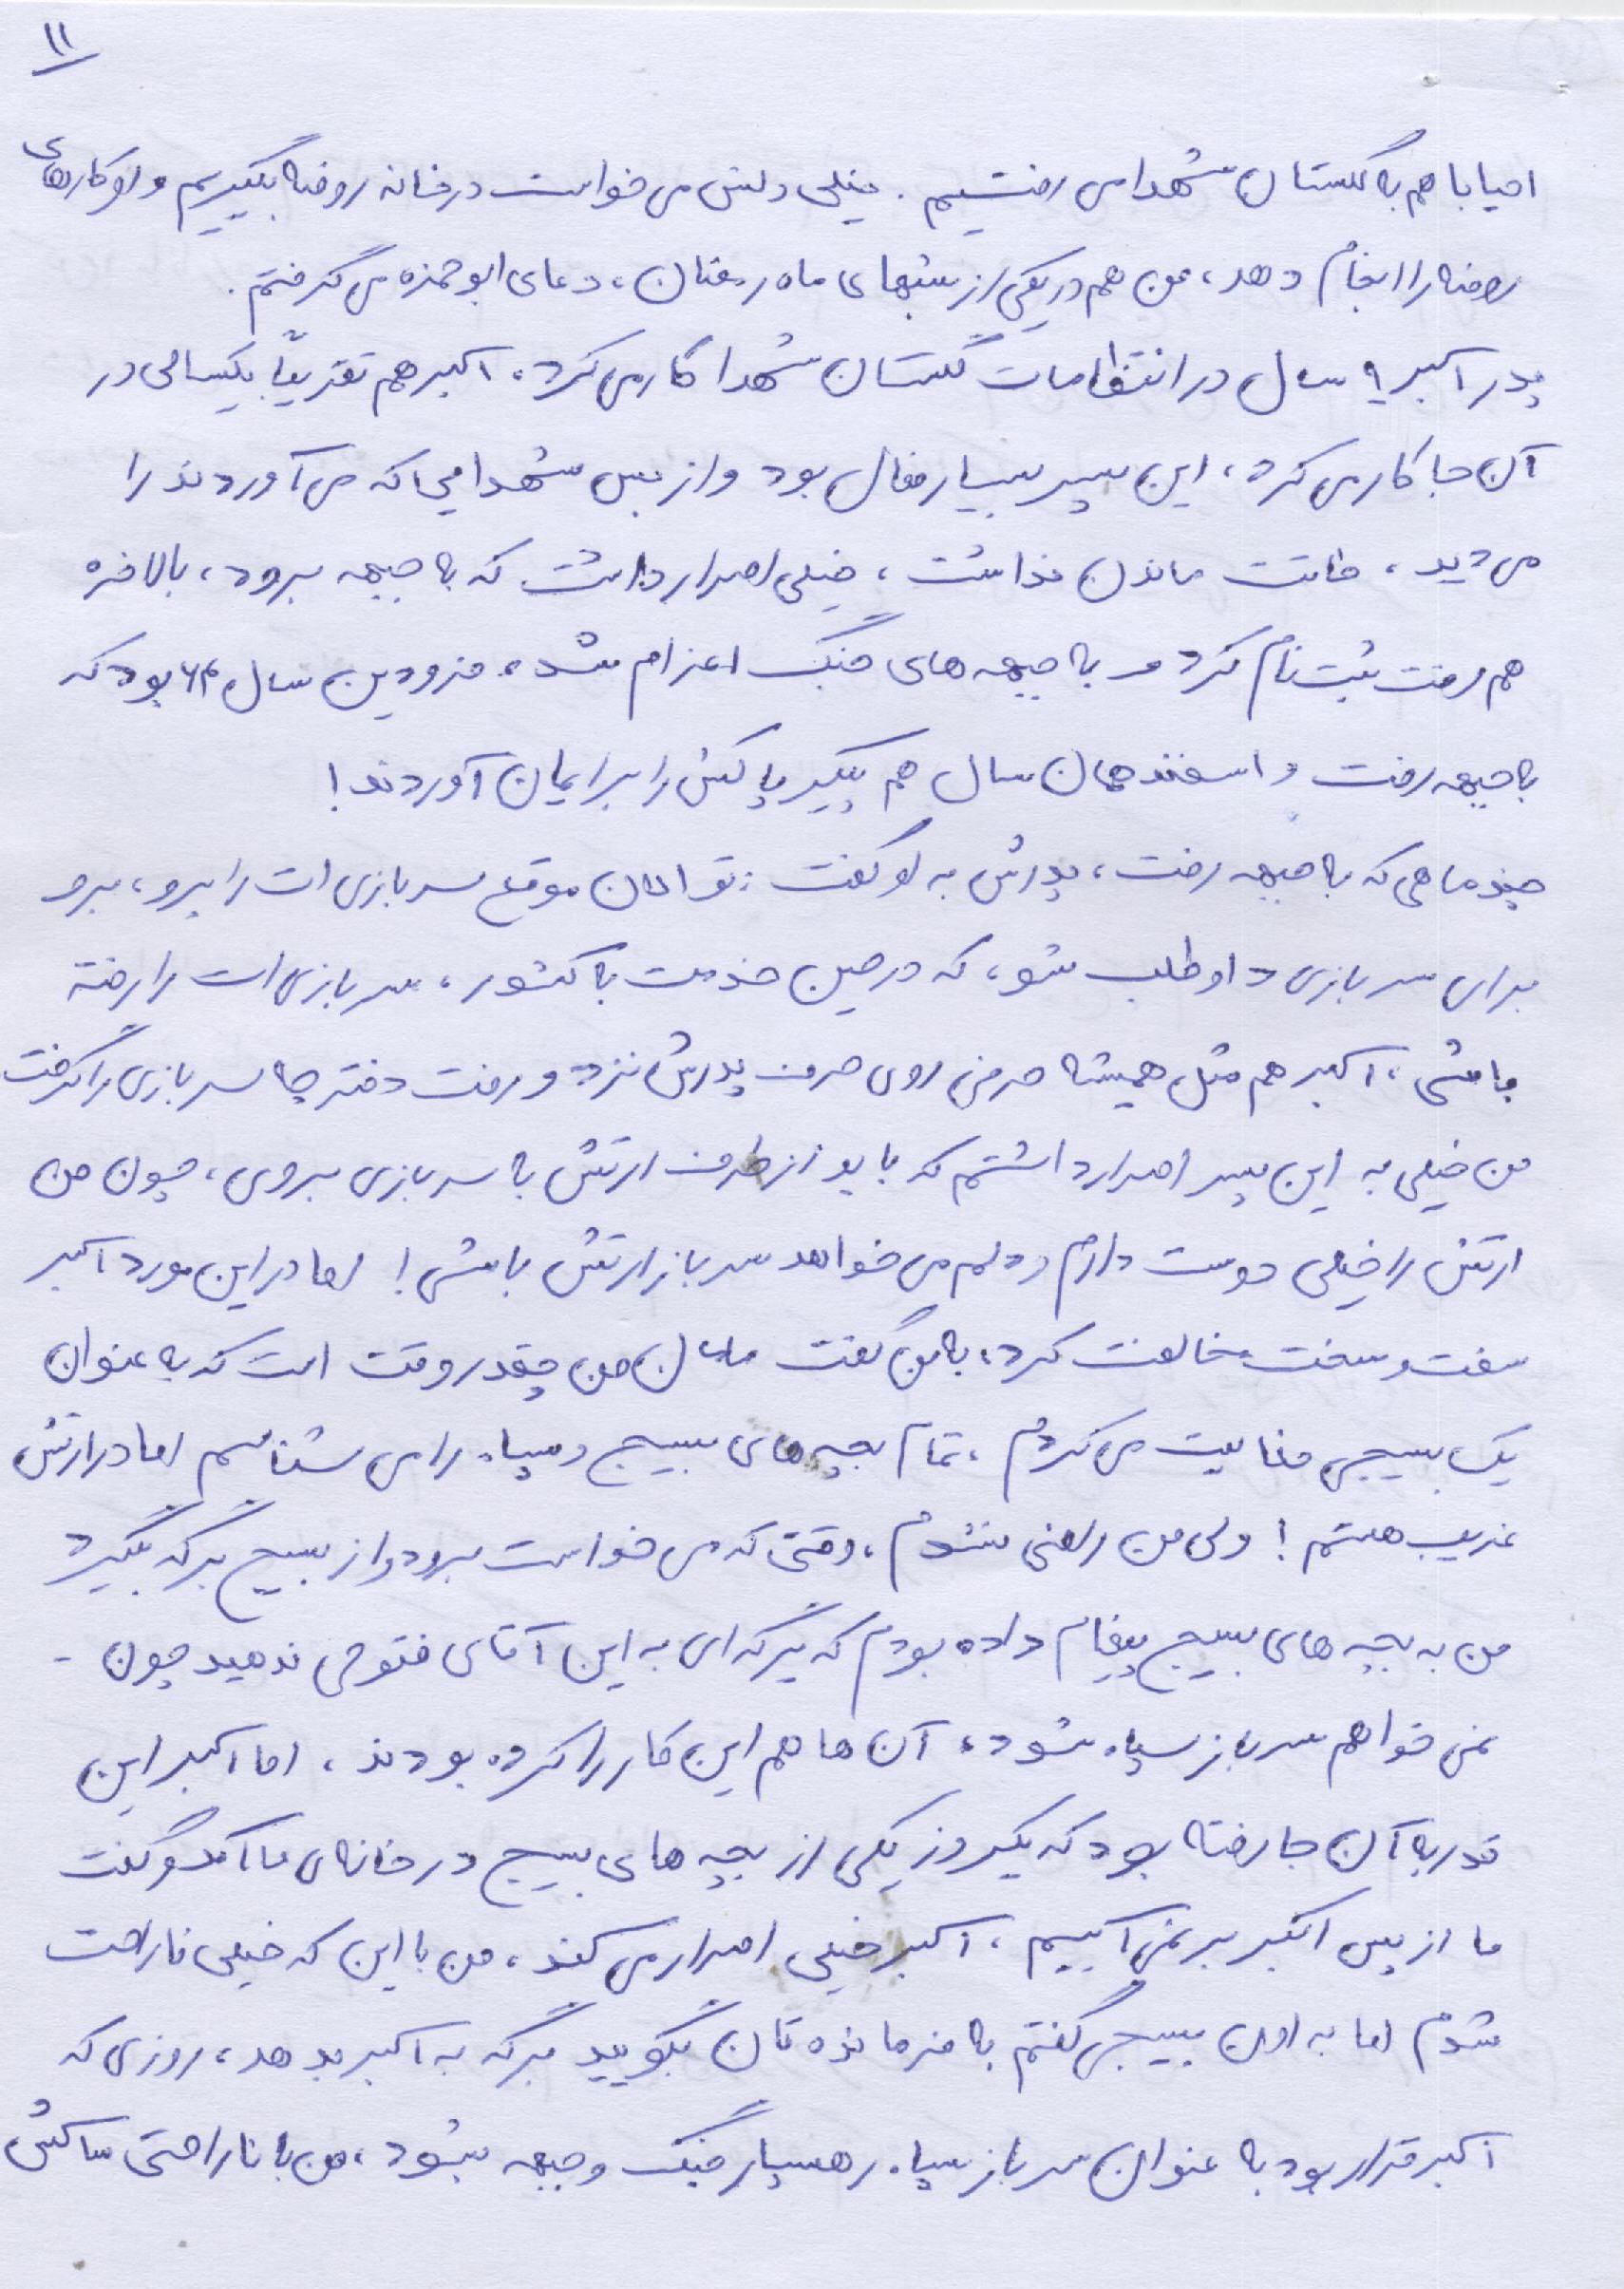 ۱۱
احیا با هم به گلستان شهدا می رفتیم. خیلی دلش می خواست در خانه روضه بگیریم و او کارهای
روضه را انجام دهد، من هم در یکی از شبهای ماه رمضان، دعای ابوحمزه می گرفتم.
پدر اکبر ۹ سال در انتظامات گلستان شهدا کار می کرد، اکبر هم تقریباً یکسالی در
آن جا کار می کرد، این پسر بسیار فعال بود و از بس شهدایی که می آوردند را
می دید، طاقت ماندن نداشت، خیلی اصرار داشت که به جبهه برود، بالاخره
هم رفت ثبت نام کرد و به جبهه های جنگ اعزام شد. فروردین سال ۶۴ بود که
به جبهه رفت و اسفند همان سال هم پیکر پاکش را برایمان آوردند!
چند ماهی که به جبهه رفت، پدرش به او گفت: تو الان موقع سربازی ات را برو، برو
برای سربازی داوطلب شو، که در حین خدمت به کشور، سربازی ات را رفته
باشی، اکبر هم مثل همیشه حرفی روی حرف پدرش نزد و رفت دفترچه سربازی را گرفت.
من خیلی به این پسر اصرار داشتم که باید از طرف ارتش به سربازی بروی، چون من
ارتش را خیلی دوست دارم و دلم می خواهد سرباز ارتش باشی! اما در این مورد اکبر
سفت و سخت مخالفت کرد، به من گفت مامان من چقدر وقت است که به عنوان
یک بسیجی فعالیت می کردم، تمام بچه های بسیج و سپاه را می شناسم اما در ارتش
غریب هستم! ولی من راضی نشدم، وقتی که می خواست برود و از بسیج برگه بگیرد
من به بچه های بسیج پیغام داده بودم که برگه ای به این آقای فتوحی ندهید چون -
نمی خواهم سرباز سپاه شود، آن ها هم این کار را کرده بودند، اما اکبر این
قدر به آن جا رفته بود که یکروز یکی از بچه های بسیج در خانه ی ما آمد و گفت
ما از پس اکبر بر نمی آییم، اکبر خیلی اصرار می کند، من با این که خیلی ناراحت
شدم اما به اون بسیجی گفتم به فرمانده تان بگویید برگه به اکبر بدهد، روزی که
اکبر قرار بود به عنوان سرباز سپاه رهسپار جنگ و جبهه بشود، من با ناراحتی ساکش